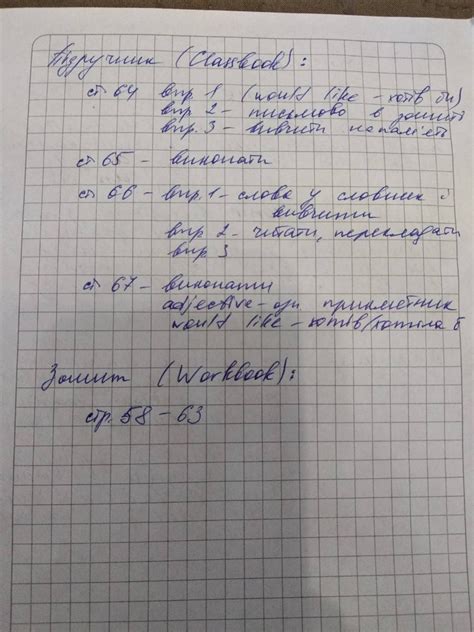 Підручник (Classbook):
ст 64 впр. 1 (would like – хотів би)
впр. 2 – письмово в зошиті
впр. 3 – вивчити напам'ять
ст 65 – виконати
ст 66 – впр. 1 – слова у словник і
вивчити
впр 2 – читати, перекладати
впр 3
ст 67 – виконати
adjective – прикметник
would like – хотів/хотіла б
Зошит (Workbook):
стр. 58 – 63